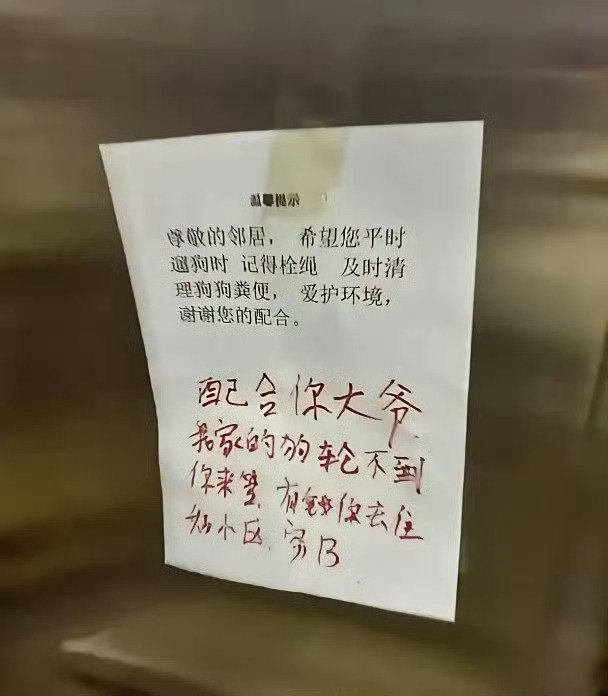 温馨提示
尊敬的邻居， 希望您平时
遛狗时 记得栓绳 及时清
理狗狗粪便， 爱护环境，
谢谢您的配合。
配合你大爷
我家的狗轮不到
你来管，有钱你去住
好小区，穷B